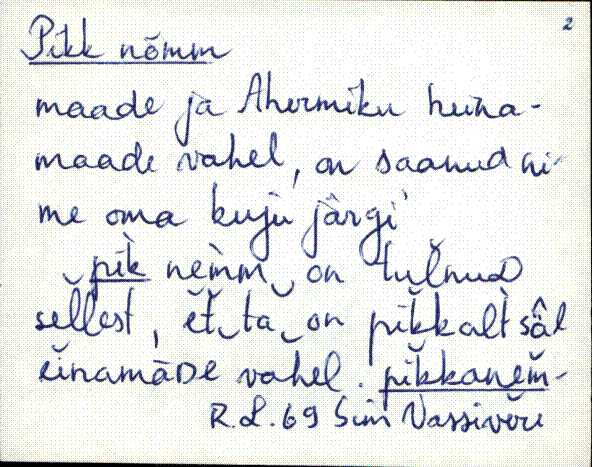 2
Pikk nõmm
maade ja Ahermiku heina-
maade vahel, on saanud ni-
me oma kuju järgi
pìk nem̀m on tulnuD
sel̆lest, ĕt̆ ta on pik̆kalt sä̂l
ĕinamāDe vahel. pik̆kanem̆-
R.L. 69 Siim Vassivere